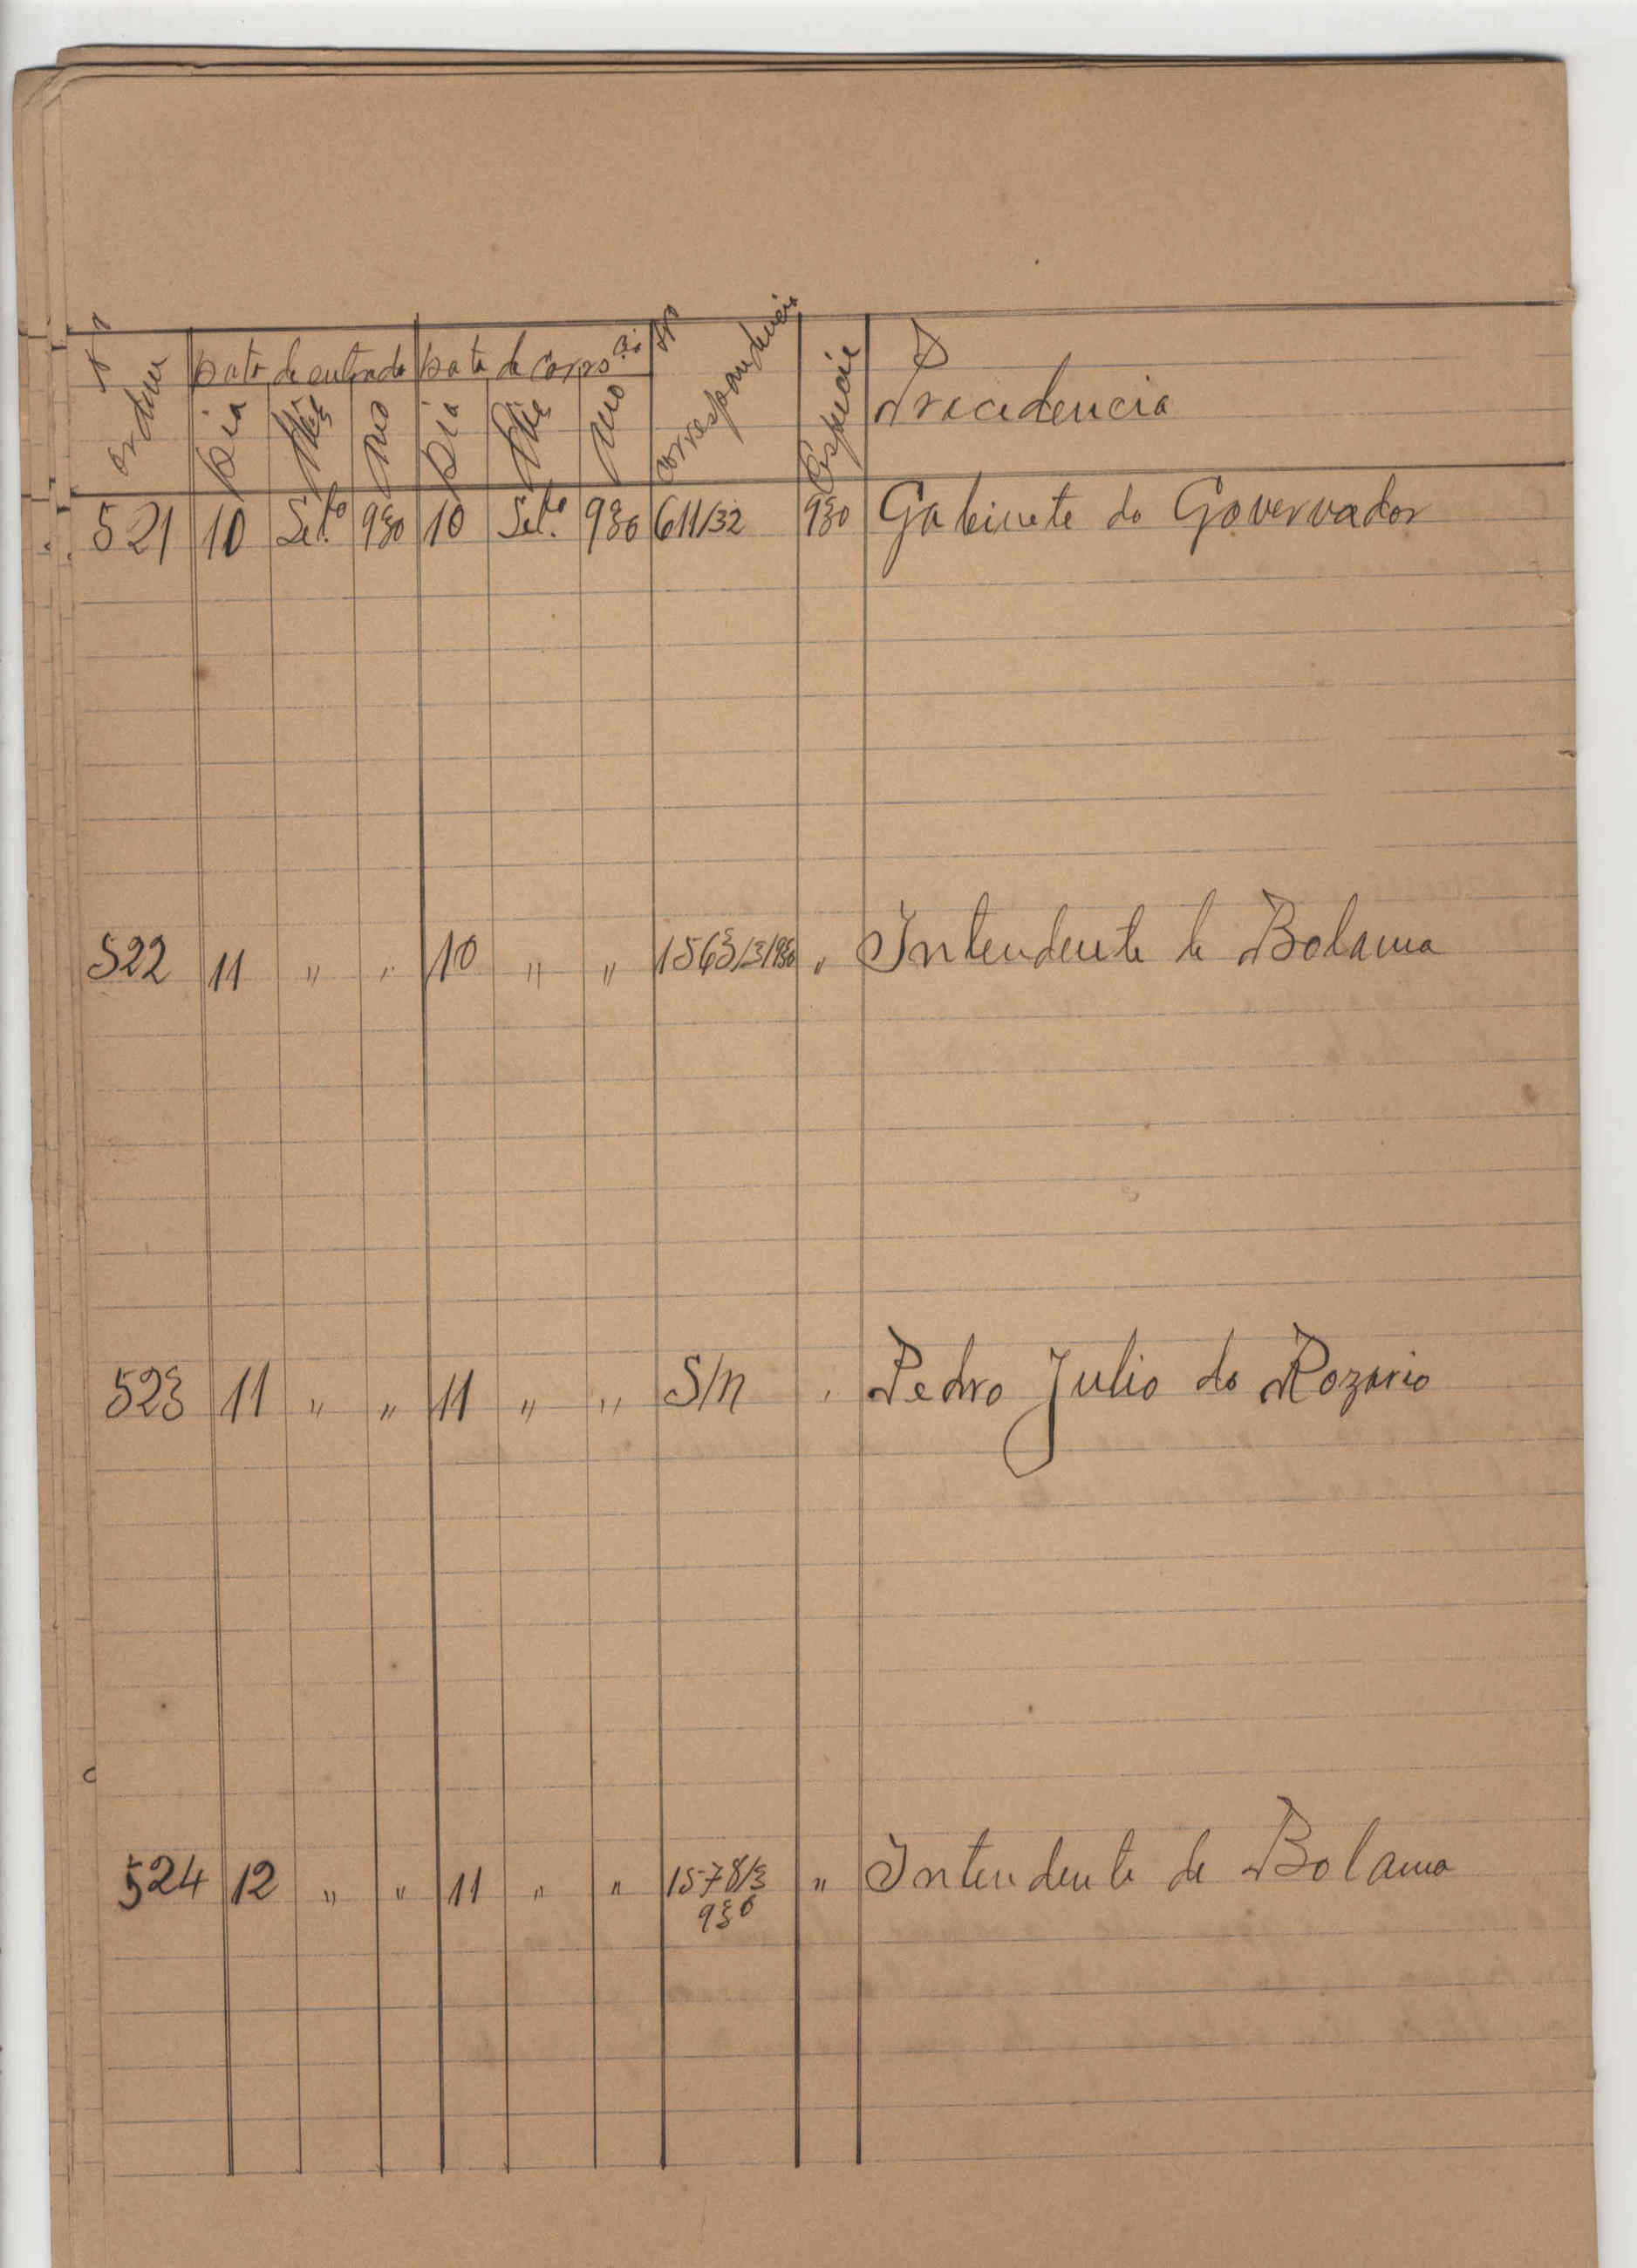 Nº Ordem | Data de entrada | Data da Corrs.cia | Nº correspondencia | Especie | Precedencia
Dia | Mês | Ano | Dia | Mês | Ano
521 | 10 | Set.bo | 930 | 10 | Set.bo | 930 | 611/32 | 930 | Gabinete do Governador
522 | 11 | " | " | 10 | " | " | 1563/3/930 | " | Intendente de Bolama
523 | 11 | " | " | 11 | " | " | S/n | " | Pedro Julio do Rozario
524 | 12 | " | " | 11 | " | " | 1578/3 | " | Intendente de Bolama
930